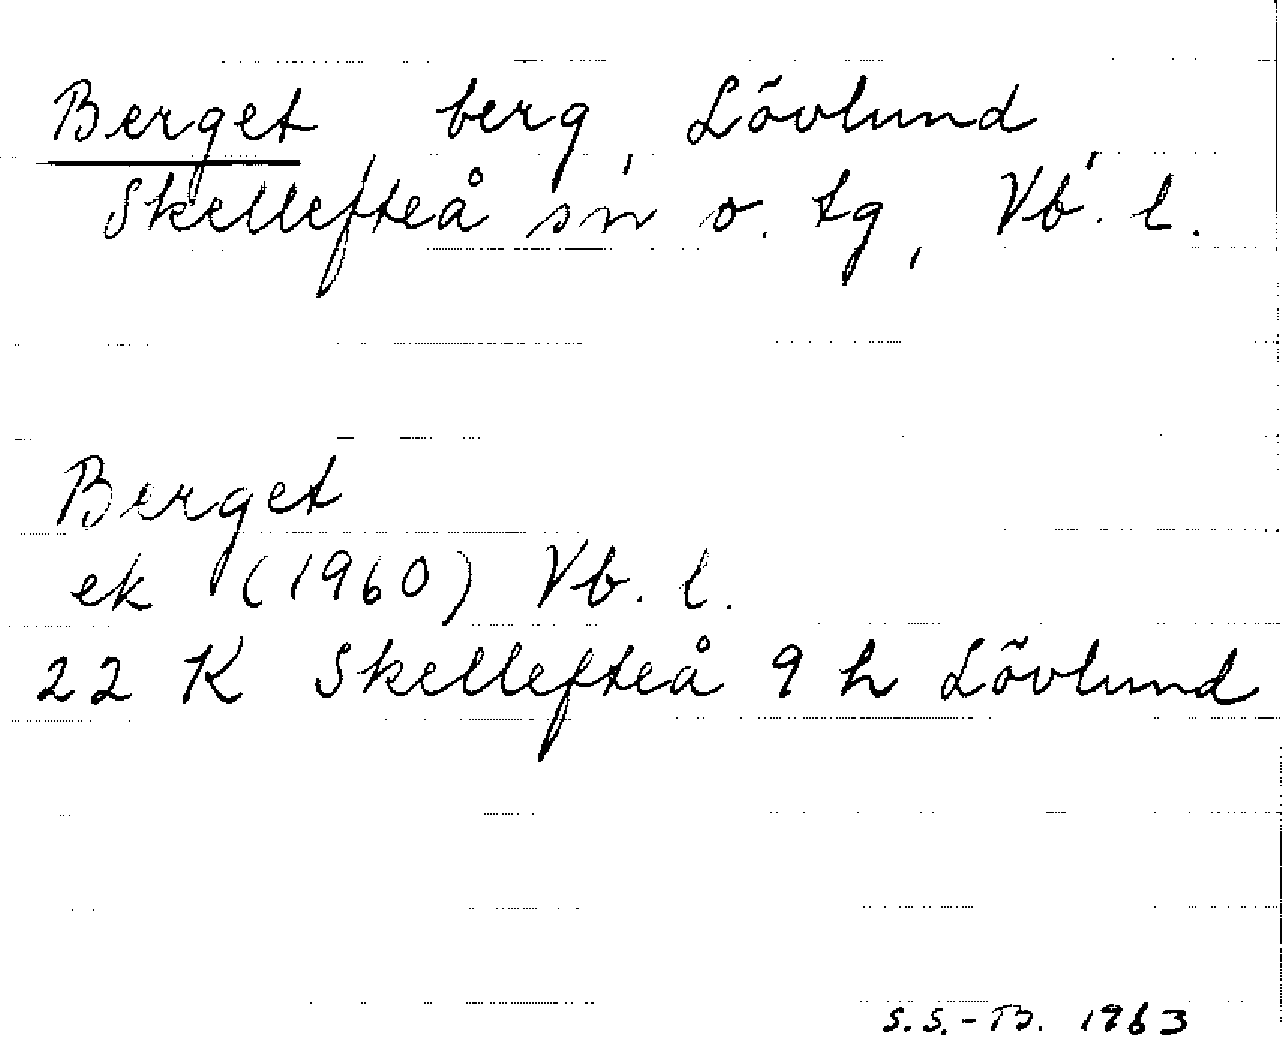 Berget berg, Lövlund,
Skellefteå sn o. tg, Vb. l.
Berget
ek (1960) Vb. l.
22 K Skellefteå 9 h Lövlund
S.S.-B. 1963